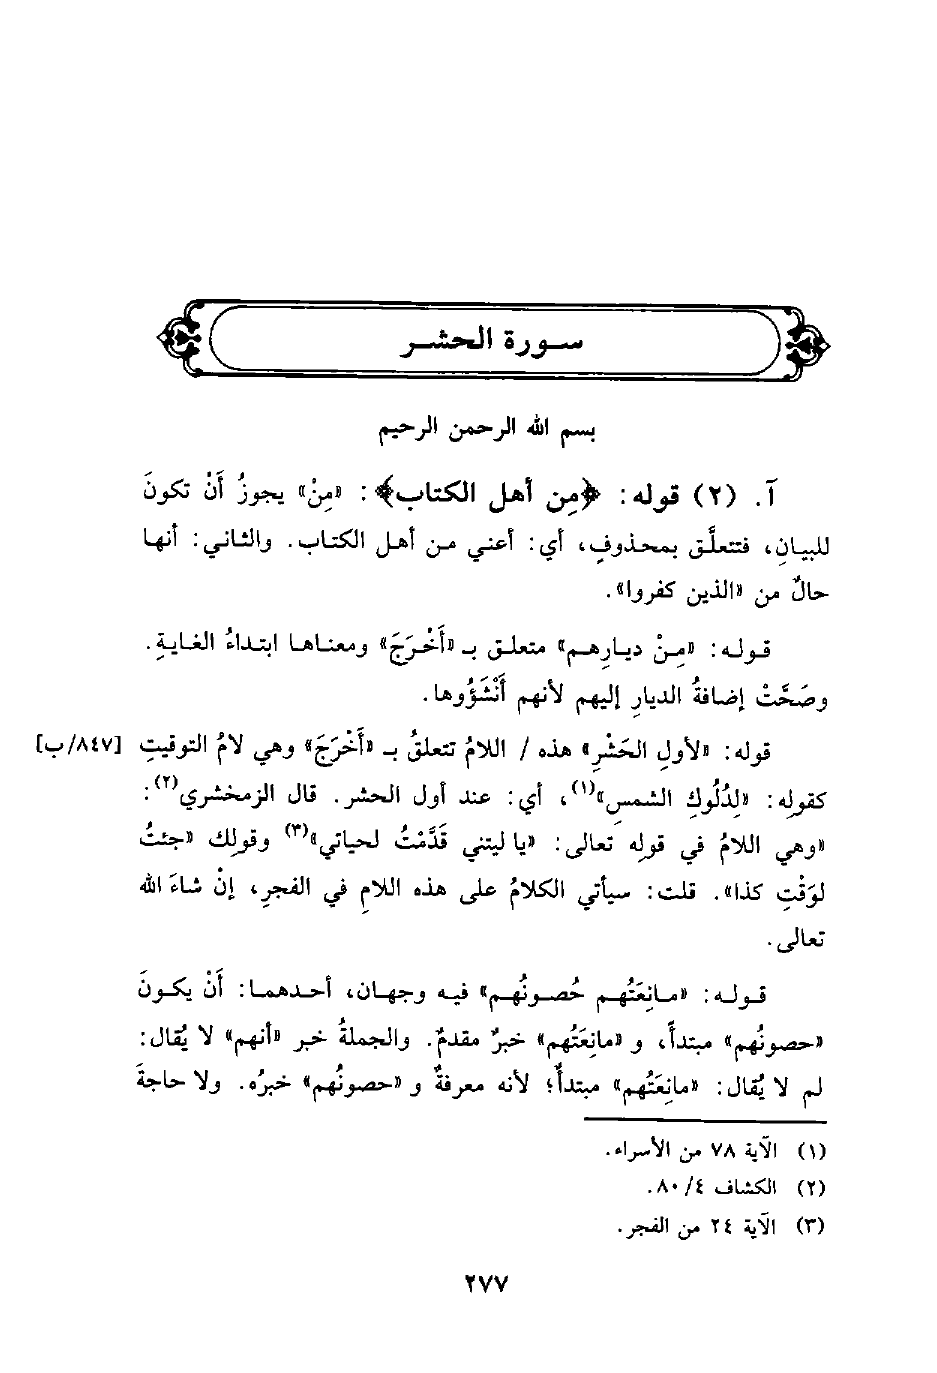 سورة الحشر
بسم الله الرحمن الرحيم
آ. (٢) قوله: ﴿مِن أهل الكتاب﴾: «مِنْ» يجوزُ أَنْ تكونَ
للبيانِ، فتتعلَّق بمحذوفٍ، أي: أعني من أهل الكتاب. والثاني: أنها
حالٌ من «الذين كفروا».
قوله: «مِنْ ديارِهم» متعلق بـ «أَخْرَجَ» ومعناها ابتداءُ الغايةِ.
وصَحَّتْ إضافةُ الديارِ إليهم لأنهم أَنْشَؤُوها.
قوله: «لأولِ الحَشْرِ» هذه / اللامُ تتعلقُ بـ «أَخْرَجَ» وهي لامُ التوقيتِ [٨٤٧/ب]
كقولِه: «لِدُلُوكِ الشمسِ»(١)، أي: عند أول الحشر. قال الزمخشري(٢):
«وهي اللامُ في قولِه تعالى: «يا ليتني قَدَّمْتُ لحياتي»(٣) وقولِك «جئتُ
لوَقْتِ كذا». قلت: سيأتي الكلامُ على هذه اللامِ في الفجرِ، إنْ شاءَ الله
تعالى.
قوله: «مانِعَتُهم حُصونُهم» فيه وجهان، أحدهما: أَنْ يكونَ
«حصونُهم» مبتدأً، و «مانِعَتُهم» خبرٌ مقدمٌ. والجملةُ خبر «أنهم» لا يُقال:
لم لا يُقال: «مانِعَتُهم» مبتدأٌ؛ لأنه معرفةٌ و «حصونُهم» خبرُه. ولا حاجةَ
(١) الآية ٧٨ من الأسراء.
(٢) الكشاف ٨٠/٤.
(٣) الآية ٢٤ من الفجر.
٢٧٧